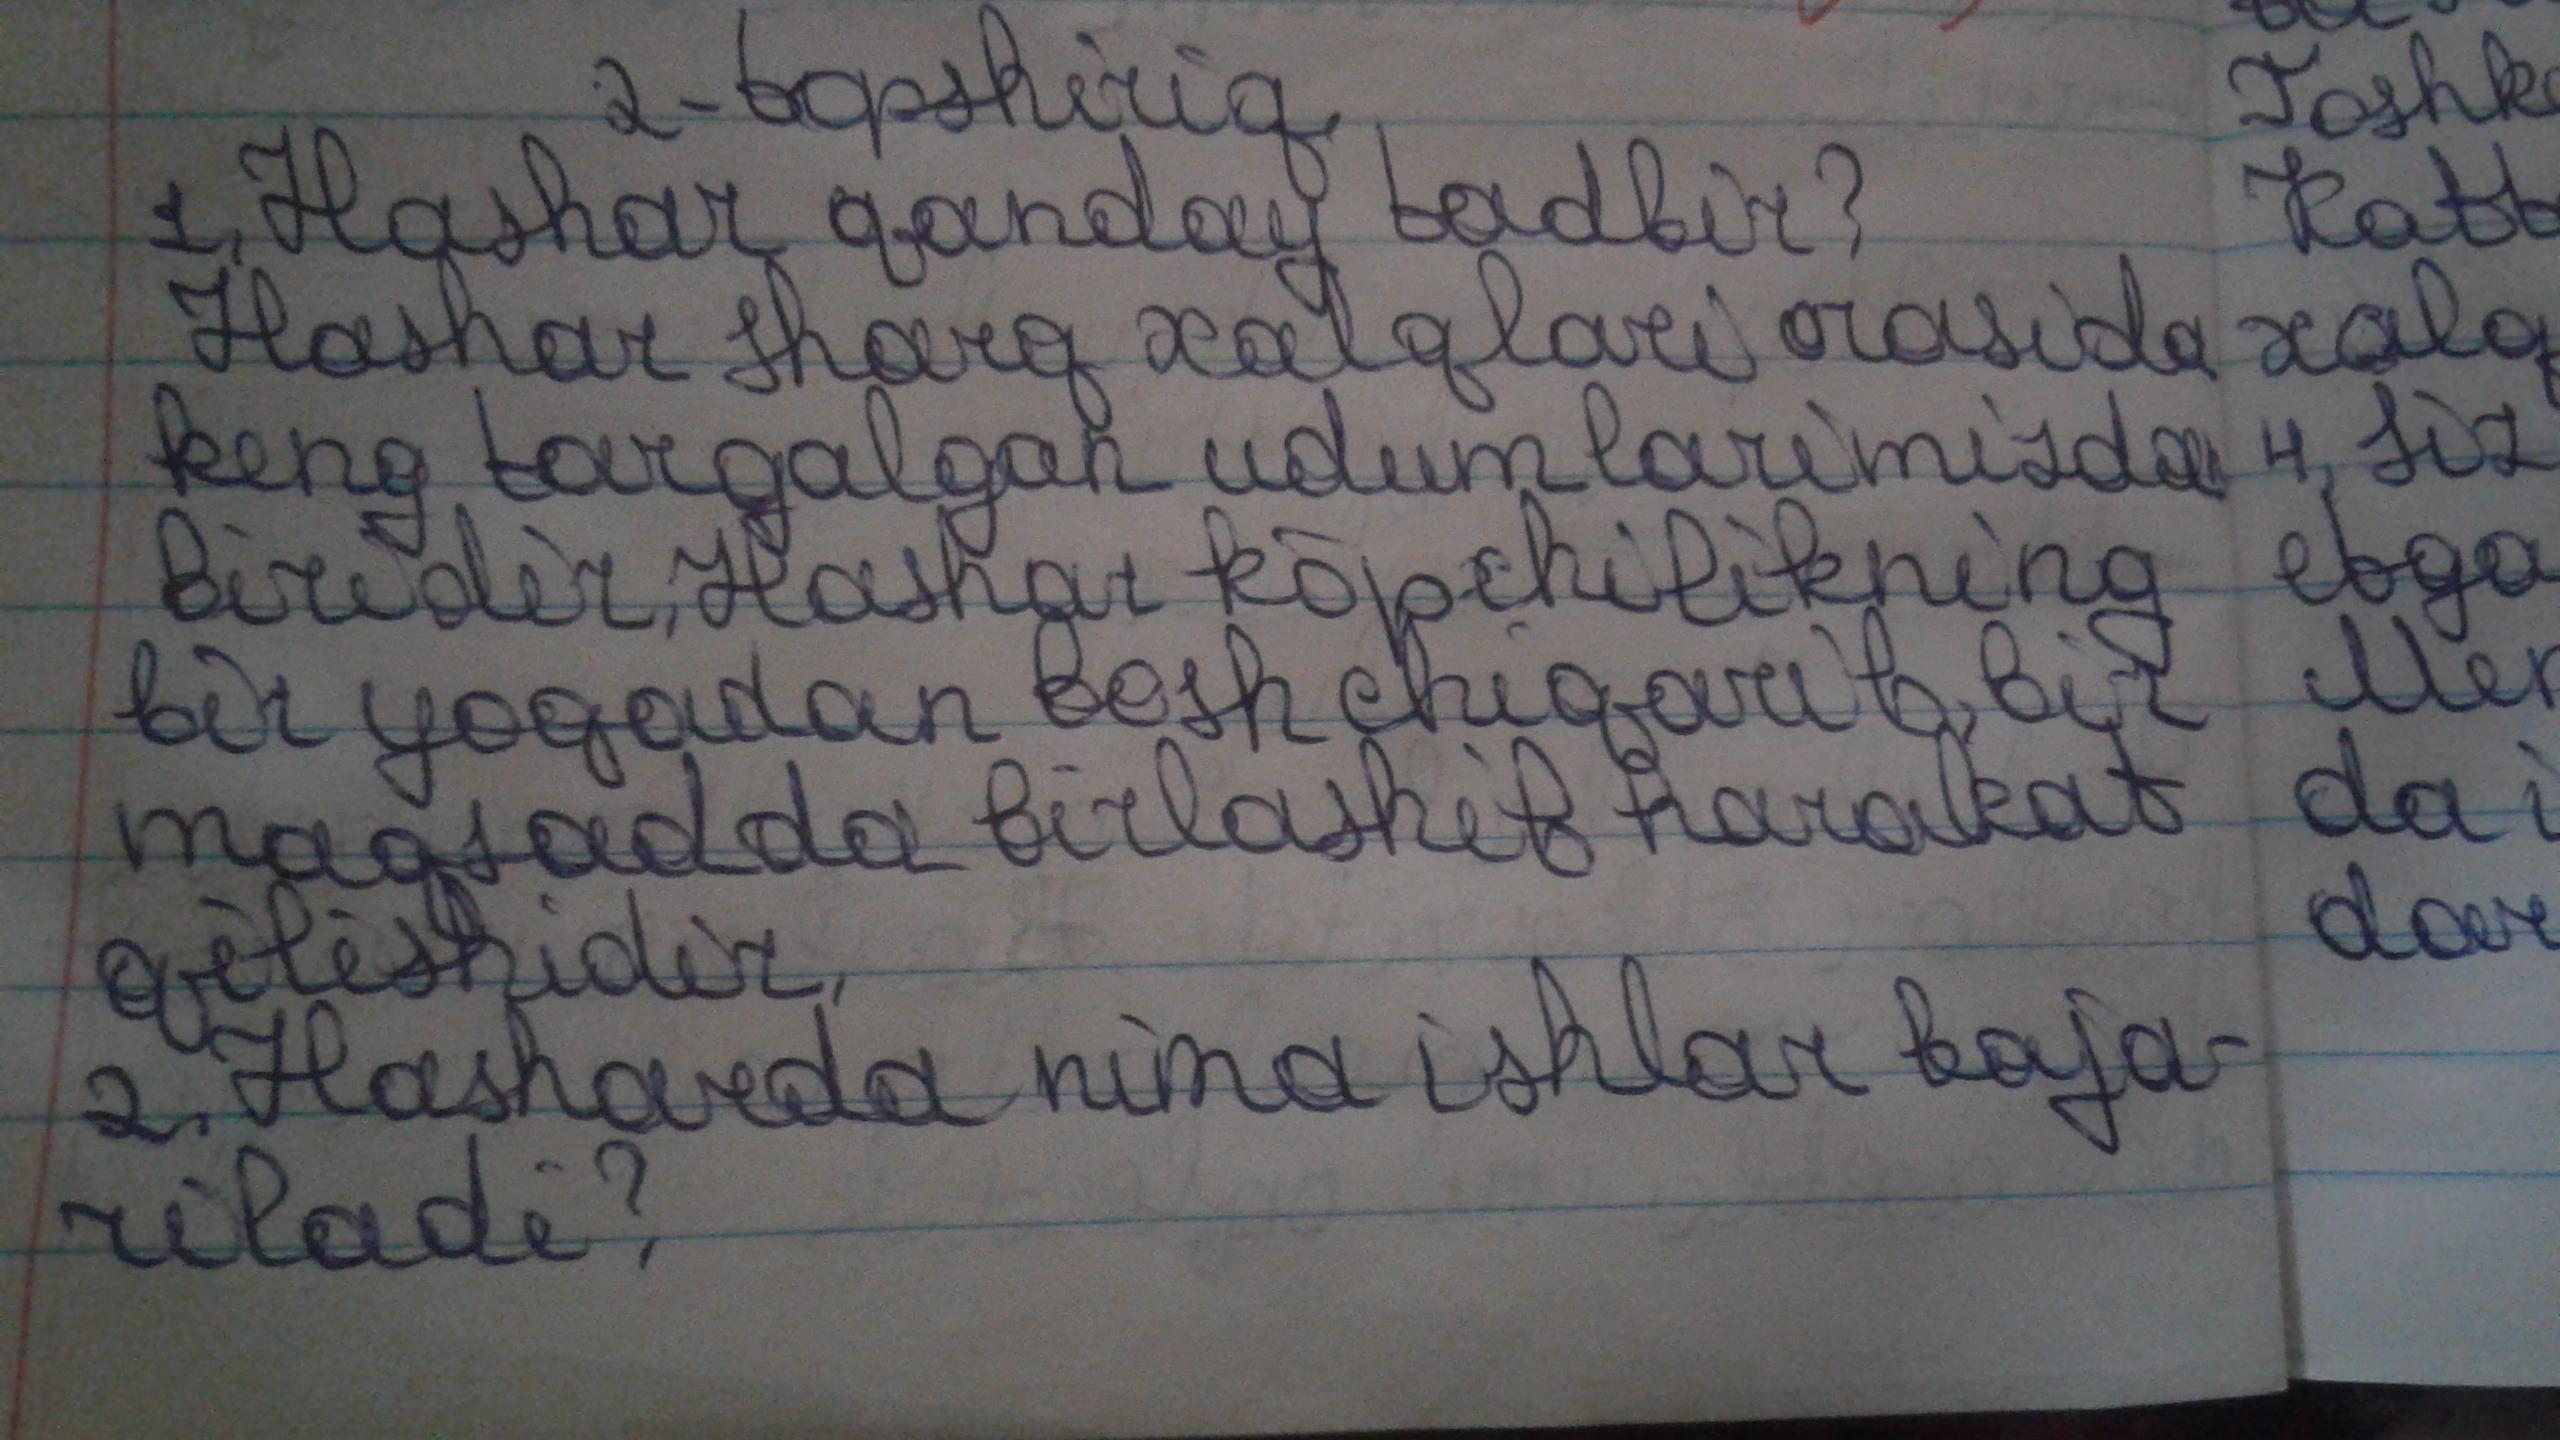 2-topshiriq.
1. Hashar qanday tadbir?
Hashar sharq xalqlari orasida
keng targalgan udumlarimizdan
biridir, Hashar kōpchilikning
bir yoqadan bosh chiqarib, bir
maqsadda birlashib harakat
qilishidir,
2. Hasharda nima ishlar baja-
riladi?
Toshk
Katt
xalq
4, Siz
etga
Men
da i
dar